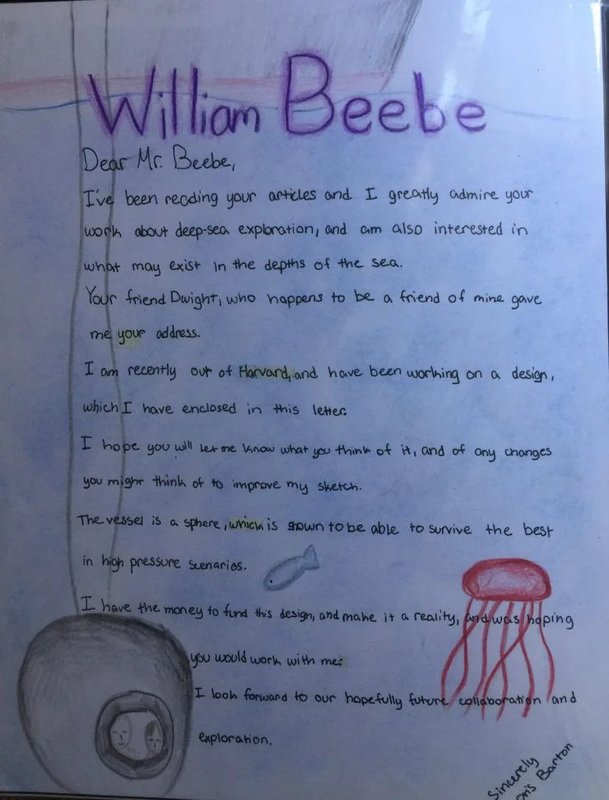 William Beebe
Dear Mr. Beebe,
I've been reading your articles and I greatly admire your
work about deep-sea exploration, and am also interested in
what may exist in the depths of the sea.
Your friend Dwight, who happens to be a friend of mine gave
me your address.
I am recently out of Harvard, and have been working on a design,
which I have enclosed in this letter.
I hope you will let me know what you think of it, and of any changes
you might think of to improve my sketch.
The vessel is a sphere, which is shown to be able to survive the best
in high pressure scenarios.
I have the money to fund this design, and make it a reality, and was hoping
you would work with me.
I look forward to our hopefully future collaboration and
exploration.
Sincerely
Barton